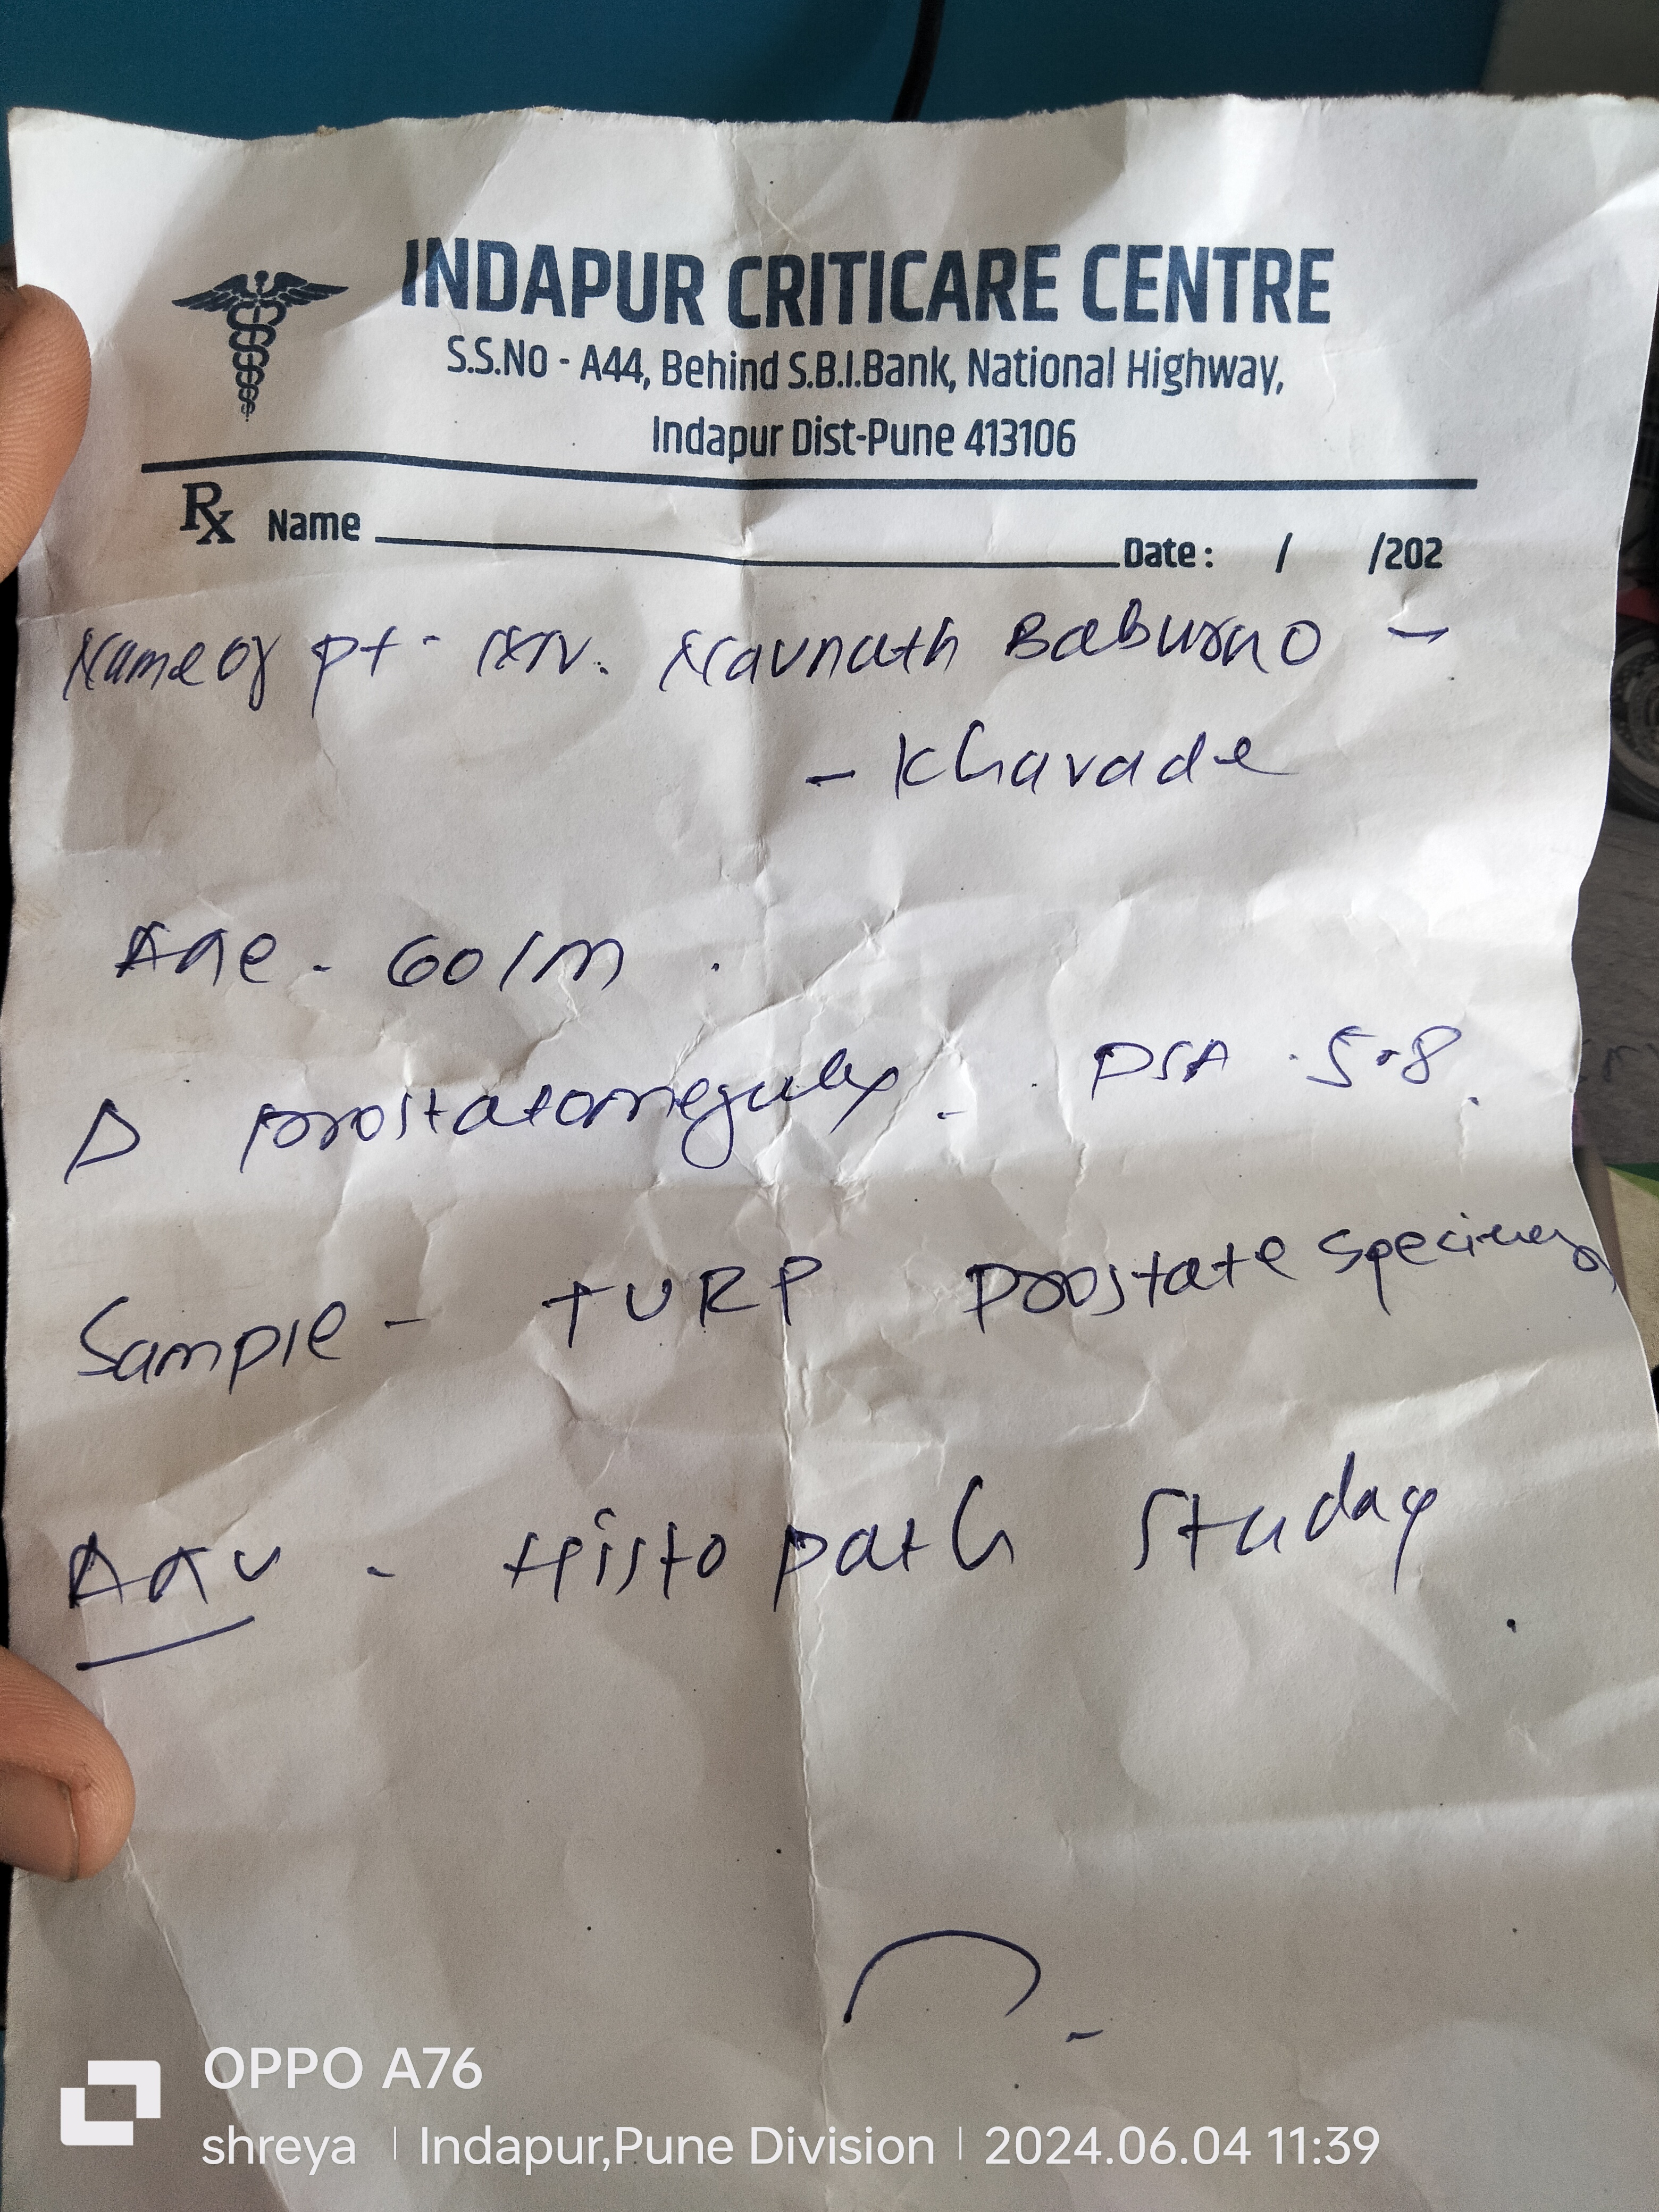 INDAPUR CRITICARE CENTRE
S.S.No - A44, Behind S.B.I.Bank, National Highway,
Indapur Dist-Pune 413106
Rx Name Date : / /202
Name of pt - Mr. Navnath Baburao -
- Kharade
Age - 60/M.
Δ prostatomegaly. PSA - 5.8.
Sample - TURP prostate specimen
Adv - Histopath Study.
OPPO A76
shreya | Indapur,Pune Division | 2024.06.04 11:39